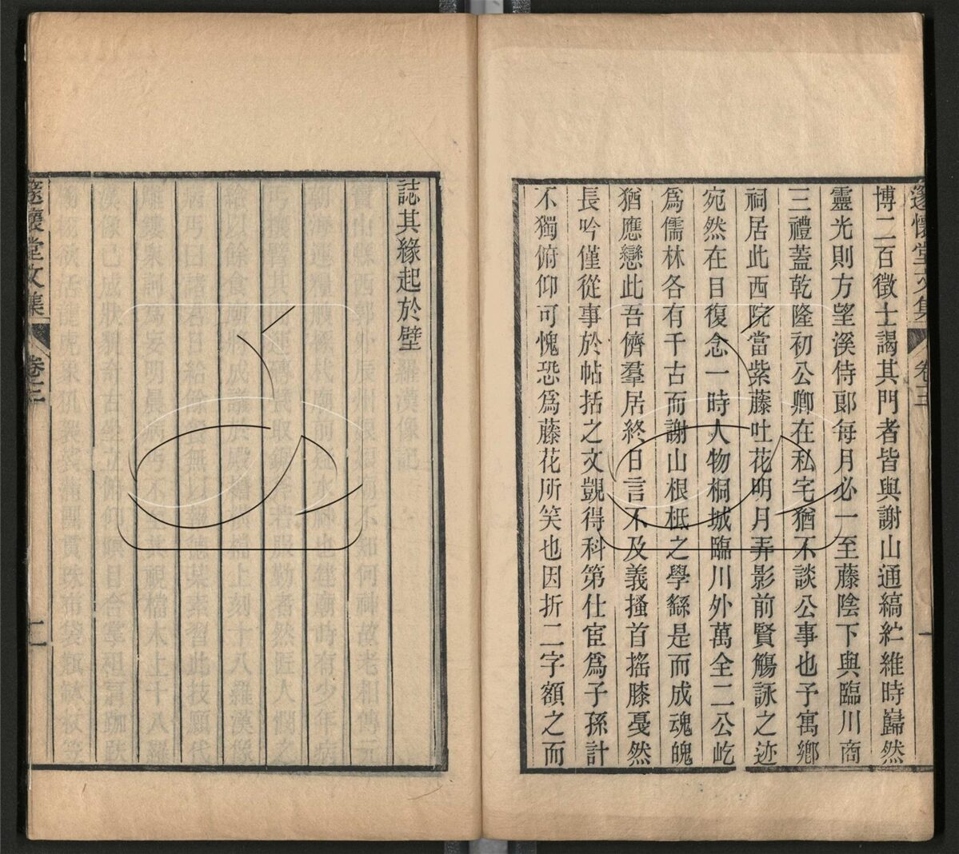 邃懷堂文集 卷三
博二百徵士謁其門者皆與謝山通縞紵維時巋然
靈光則方望溪侍郎每月必一至藤陰下與臨川商
三禮蓋乾隆初公卿在私宅猶不談公事也予寓鄉
祠居此西院當紫藤吐花明月弄影前賢觴詠之迹
宛然在目復念一時人物桐城臨川外萬全二公屹
爲儒林各有千古而謝山根柢之學繇是而成魂魄
猶應戀此吾儕羣居終日言不及義搔首搖膝戞然
長吟僅從事於帖括之文覬得科第仕宦爲子孫計
不獨俯仰可愧恐爲藤花所笑也因折二字額之而
誌其緣起於壁
邃懷堂文集